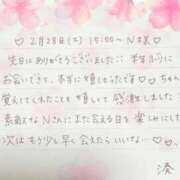 ♡ 2月28日(木) 15:00〜 N様 ♡
先日はありがとうございました♡ 本当ぶりに
お会いできて、本当に嬉しかったです♡ ちゃんと
覚えてくれたことも嬉しくて感激しました♡
素敵なNさんにまた会える日を楽しみにして
次はもう少し早く会えたらいいな♡
湊